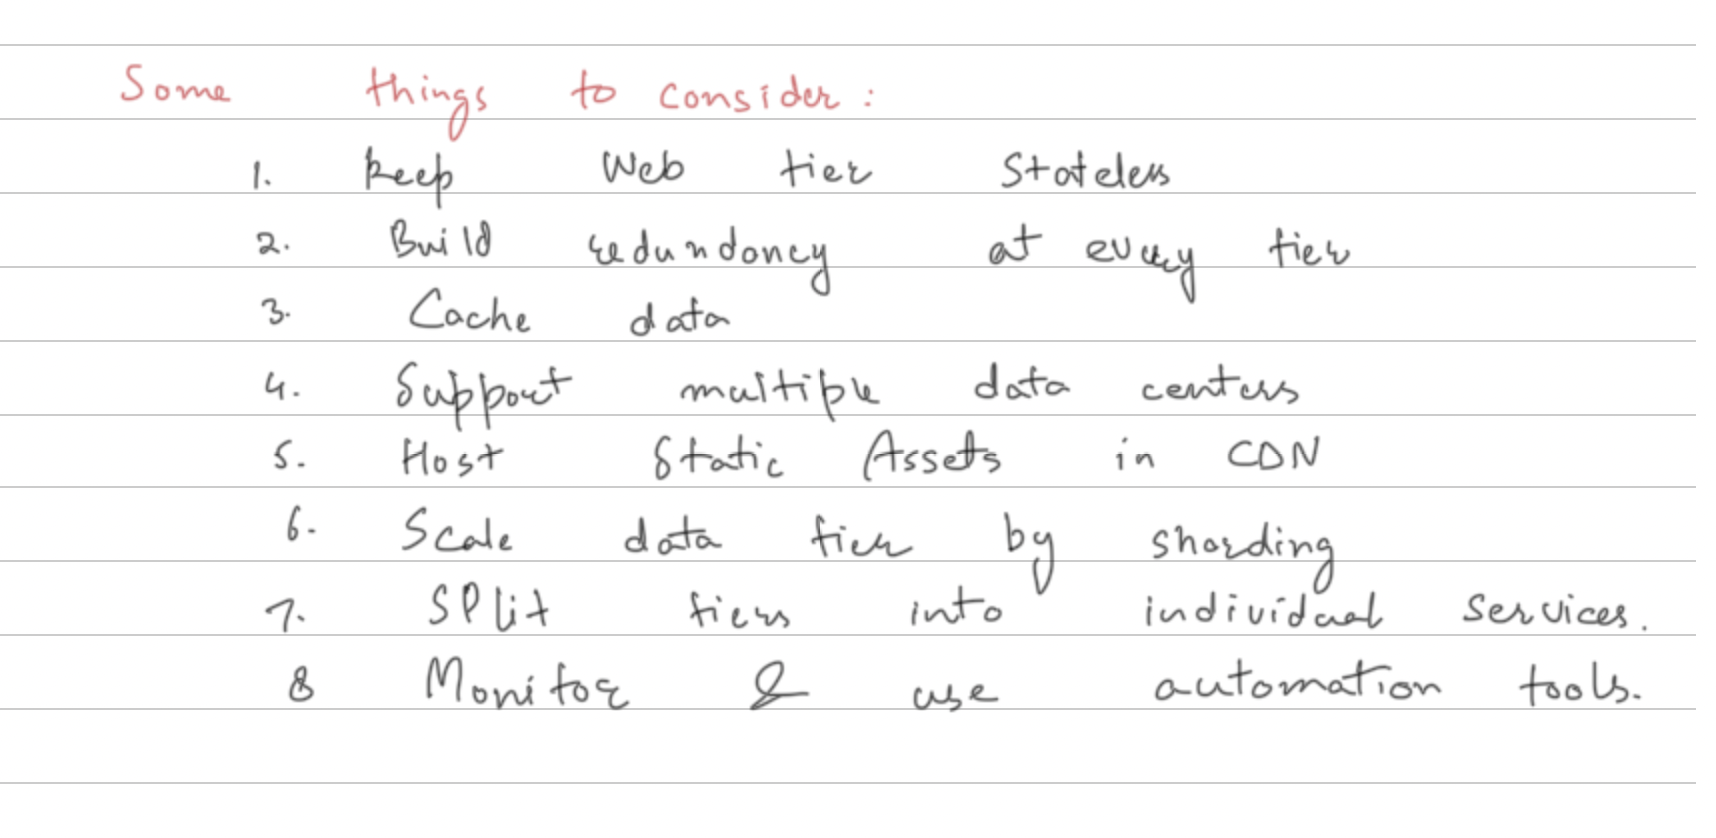 Some things to consider:
1. Keep Web tier Stateless
2. Build redundancy at every tier
3. Cache data
4. Support multiple data centers
5. Host Static Assets in CDN
6. Scale data tier by sharding
7. SPlit tiers into individual services.
8 Monitor & use automation tools.